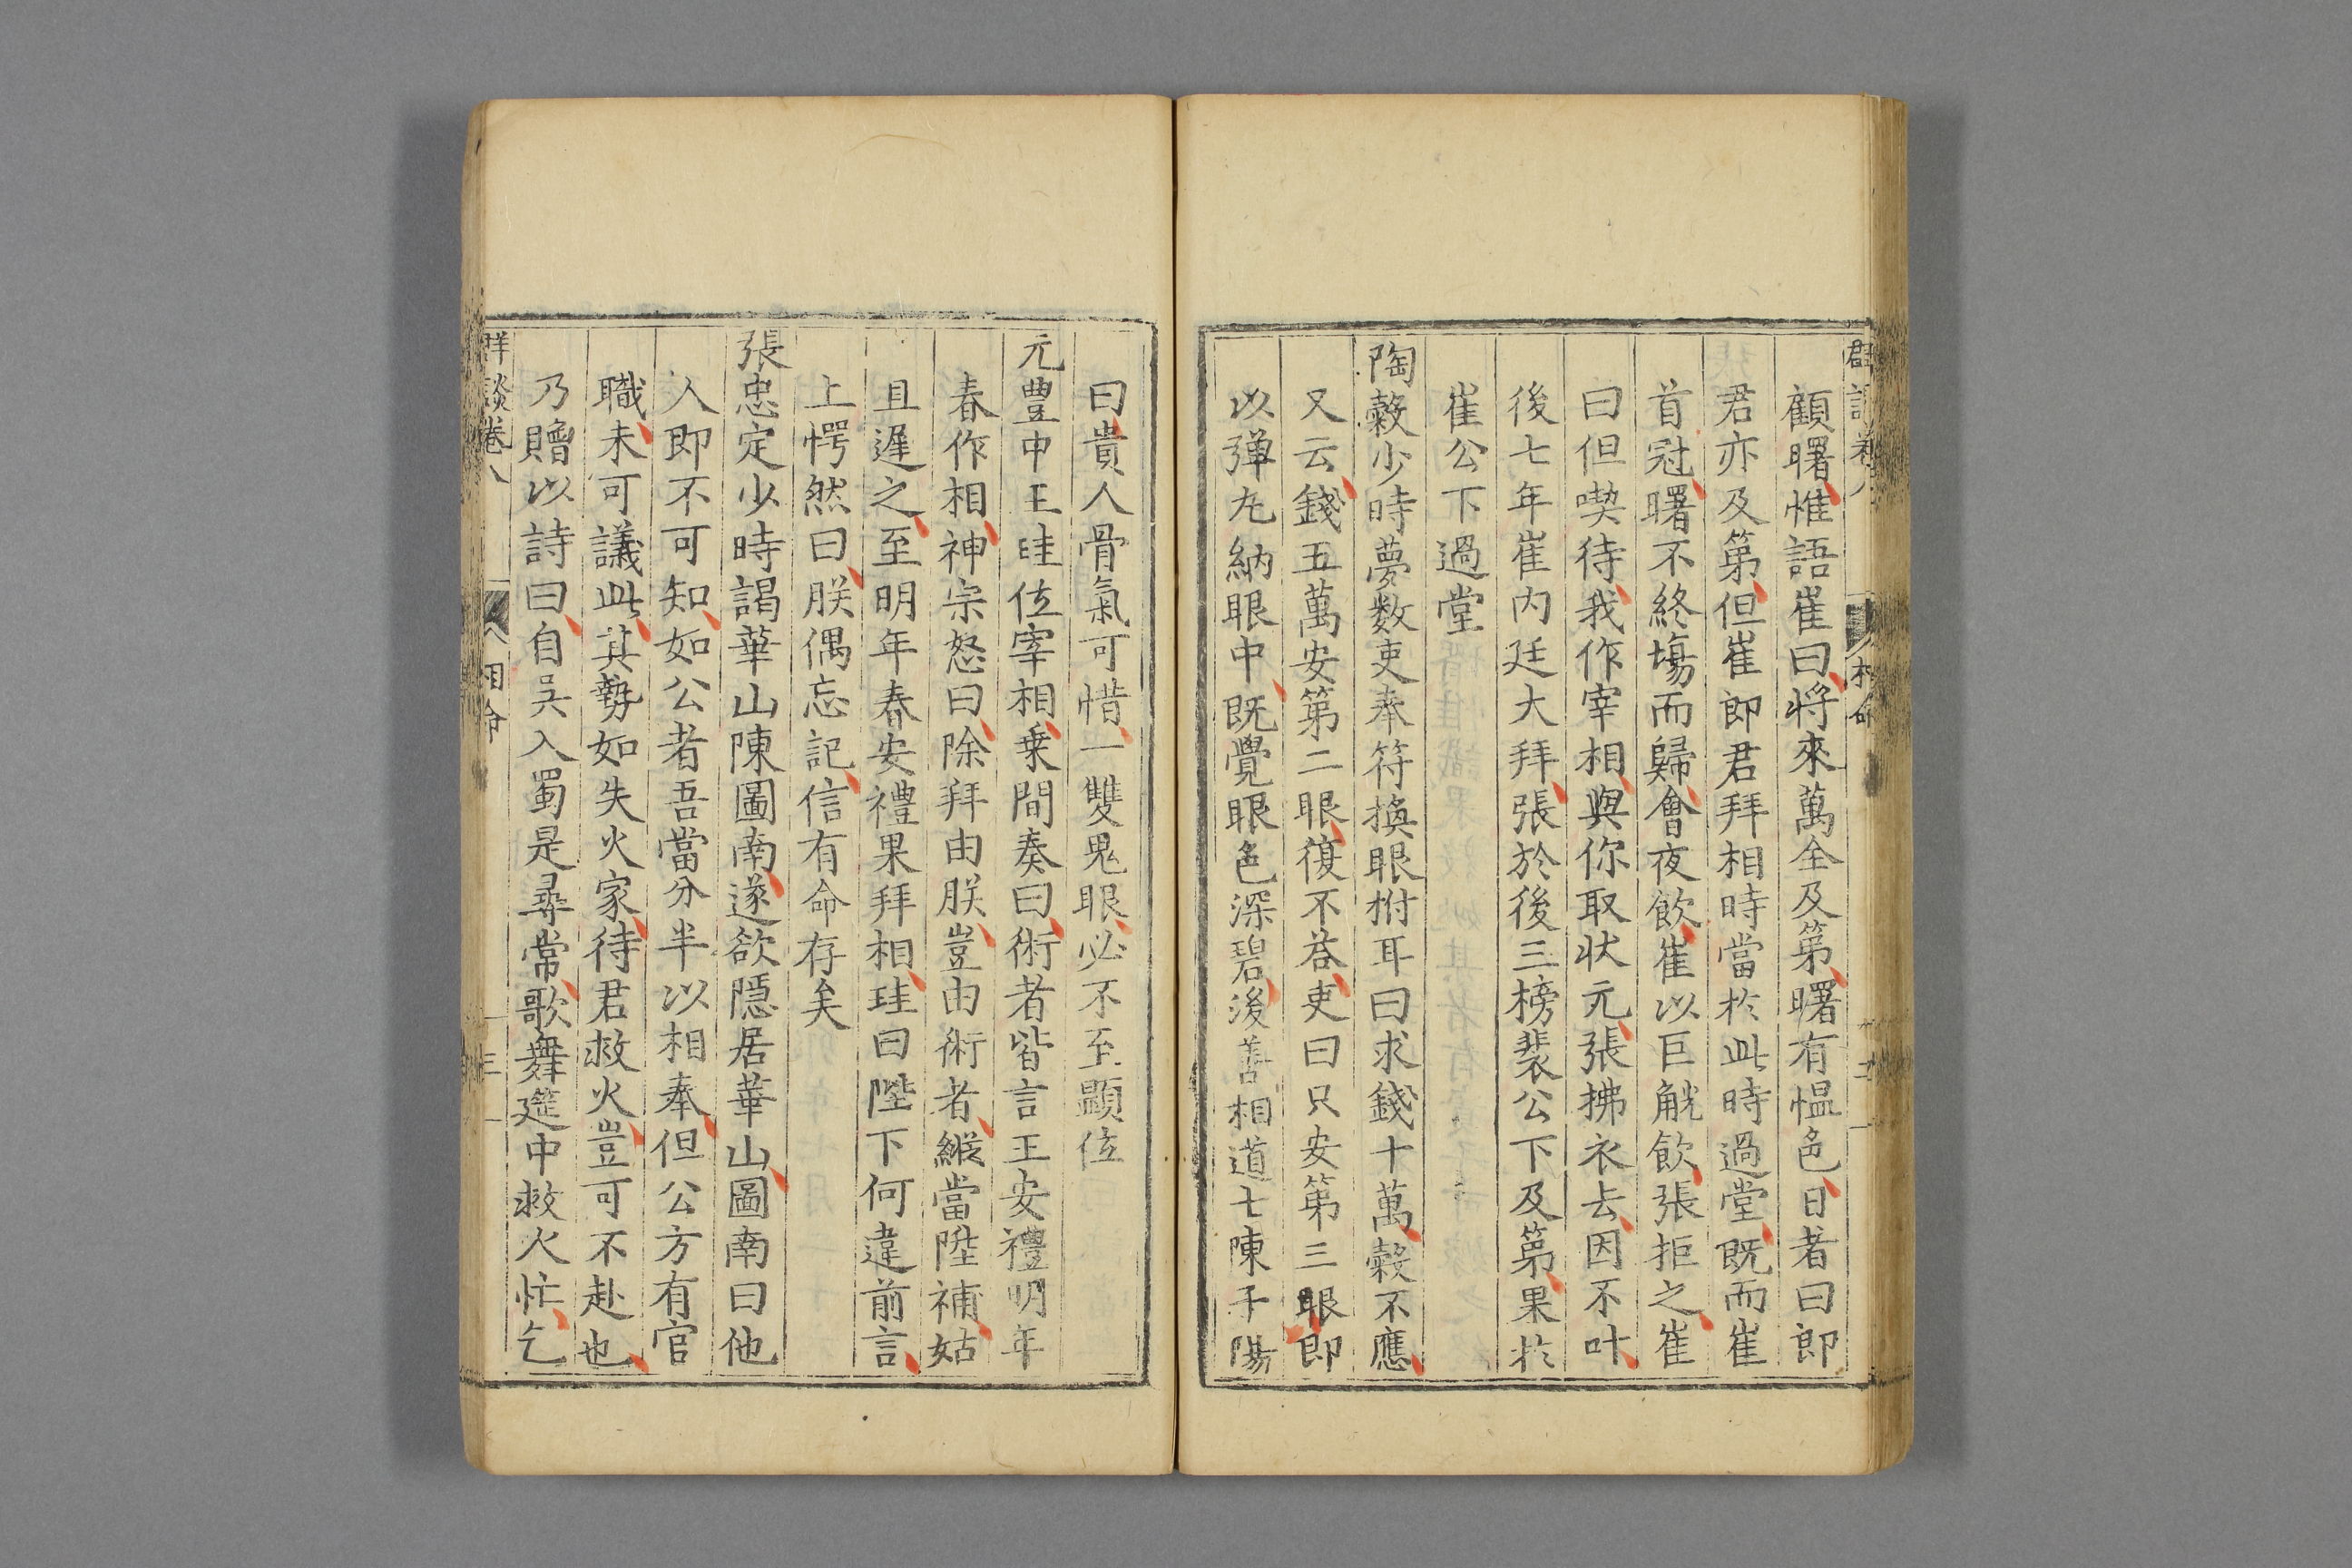 顧曙惟語崔曰將來萬全及第曙有愠色日者曰郎
君亦及第但崔郎君拜相時當於此時過堂既而崔
首冠曙不終塲而歸會夜飲崔以巨觥飲張拒之崔
曰但喫待我作宰相與你取狀元張拂衣去因不叶
後七年崔内廷大拜張於後三榜裴公下及第果於
崔公下過堂
陶縠少時夢数吏奉符換眼拊耳曰求錢十萬縠不應
又云錢五萬安第二眼復不荅吏曰只安第三眼即
以弹丸納眼中既覺眼色深碧後善相道士陳子陽
曰貴人骨氣可惜一雙鬼眼必不至顯位
元豊中王珪位宰相乗間奏曰術者皆言王安禮明年
春作相神宗怒曰除拜由朕豈由術者縱當陞補姑
且遲之至明年春安禮果拜相珪曰陛下何違前言
上愕然曰朕偶忘記信有命存矣
張忠定少時謁華山陳圖南遂欲隱居華山圖南曰他
人即不可知如公者吾當分半以相奉但公方有官
職未可議此其勢如失火家待君救火豈可不赴也
乃贈以詩曰自吳入蜀是尋常歌舞筵中救火忙乞
群談卷八 相命 三